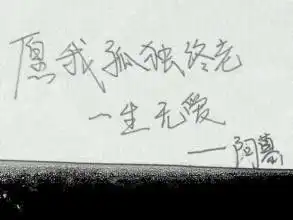 愿我孤独终老
一生无爱
——阿慕